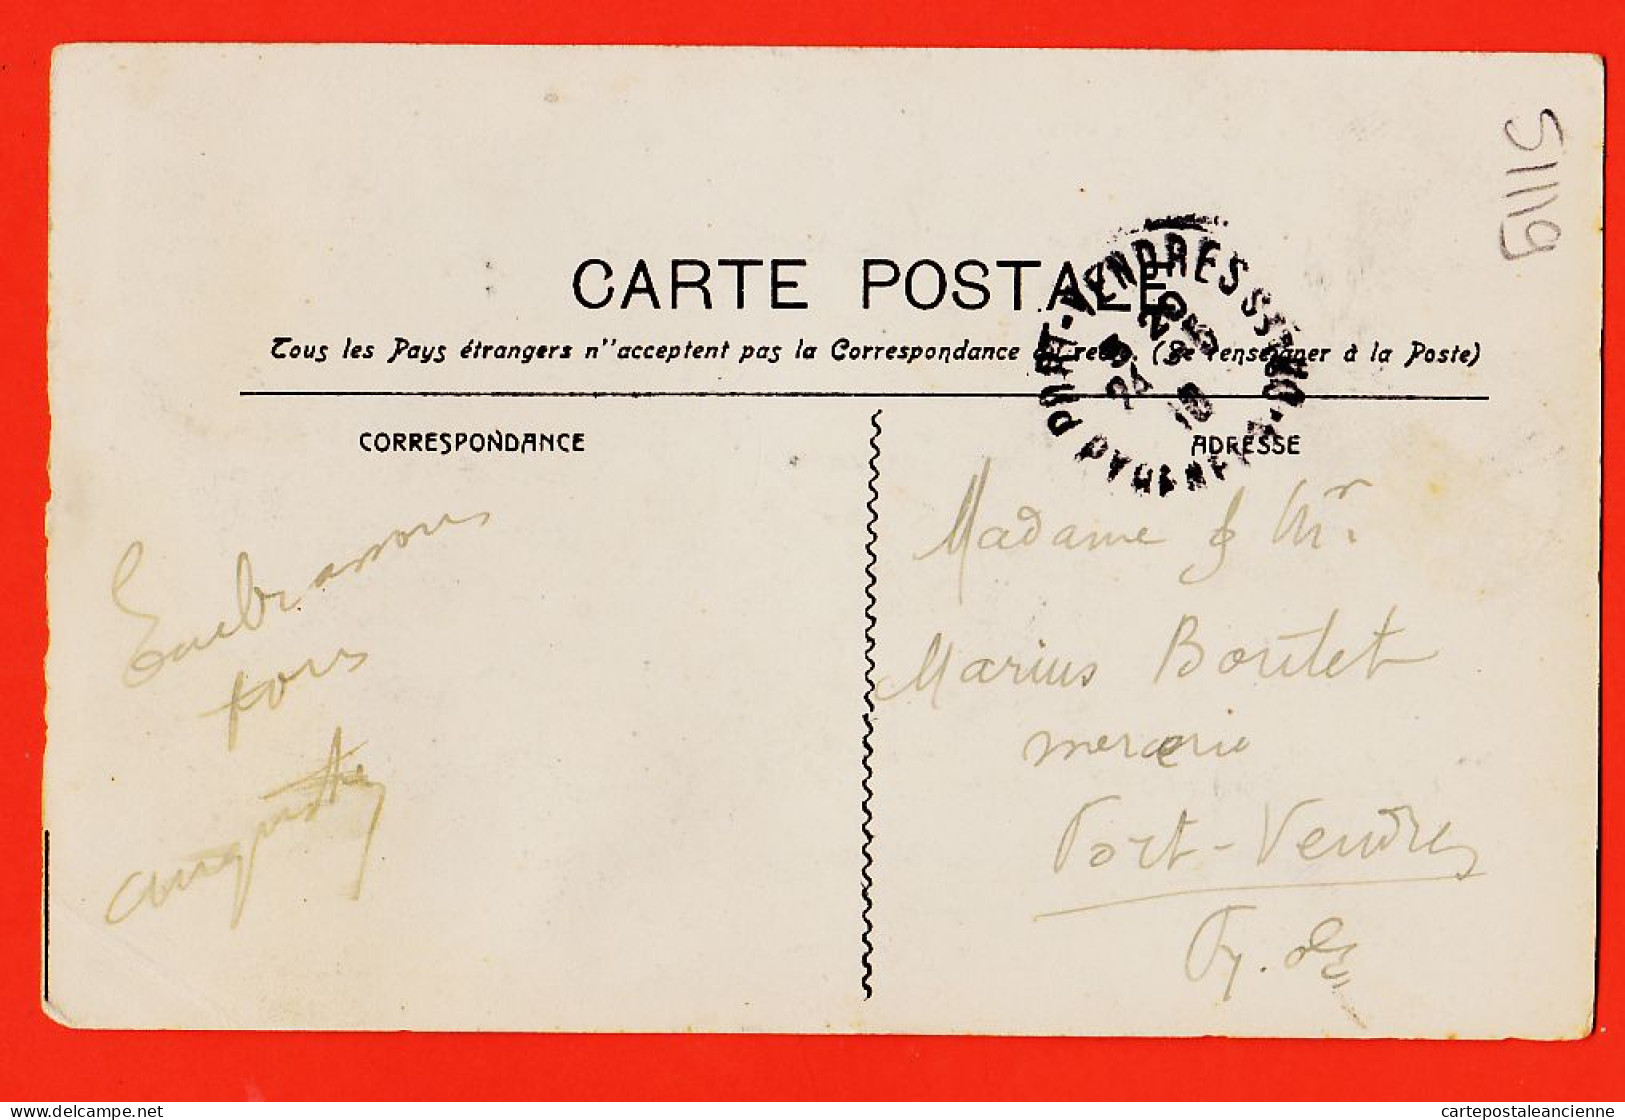 51119
CARTE POSTALE
Tous les Pays étrangers n''acceptent pas la Correspondance (Se renseigner à la Poste)
CORRESPONDANCE
ADRESSE
PORT-VENDRES
Embrassons
tous
Madame & Mr
Marius Boutet
mercerie
Port-Vendres
Py. Or
delcampe.net
cartepostaleancienne